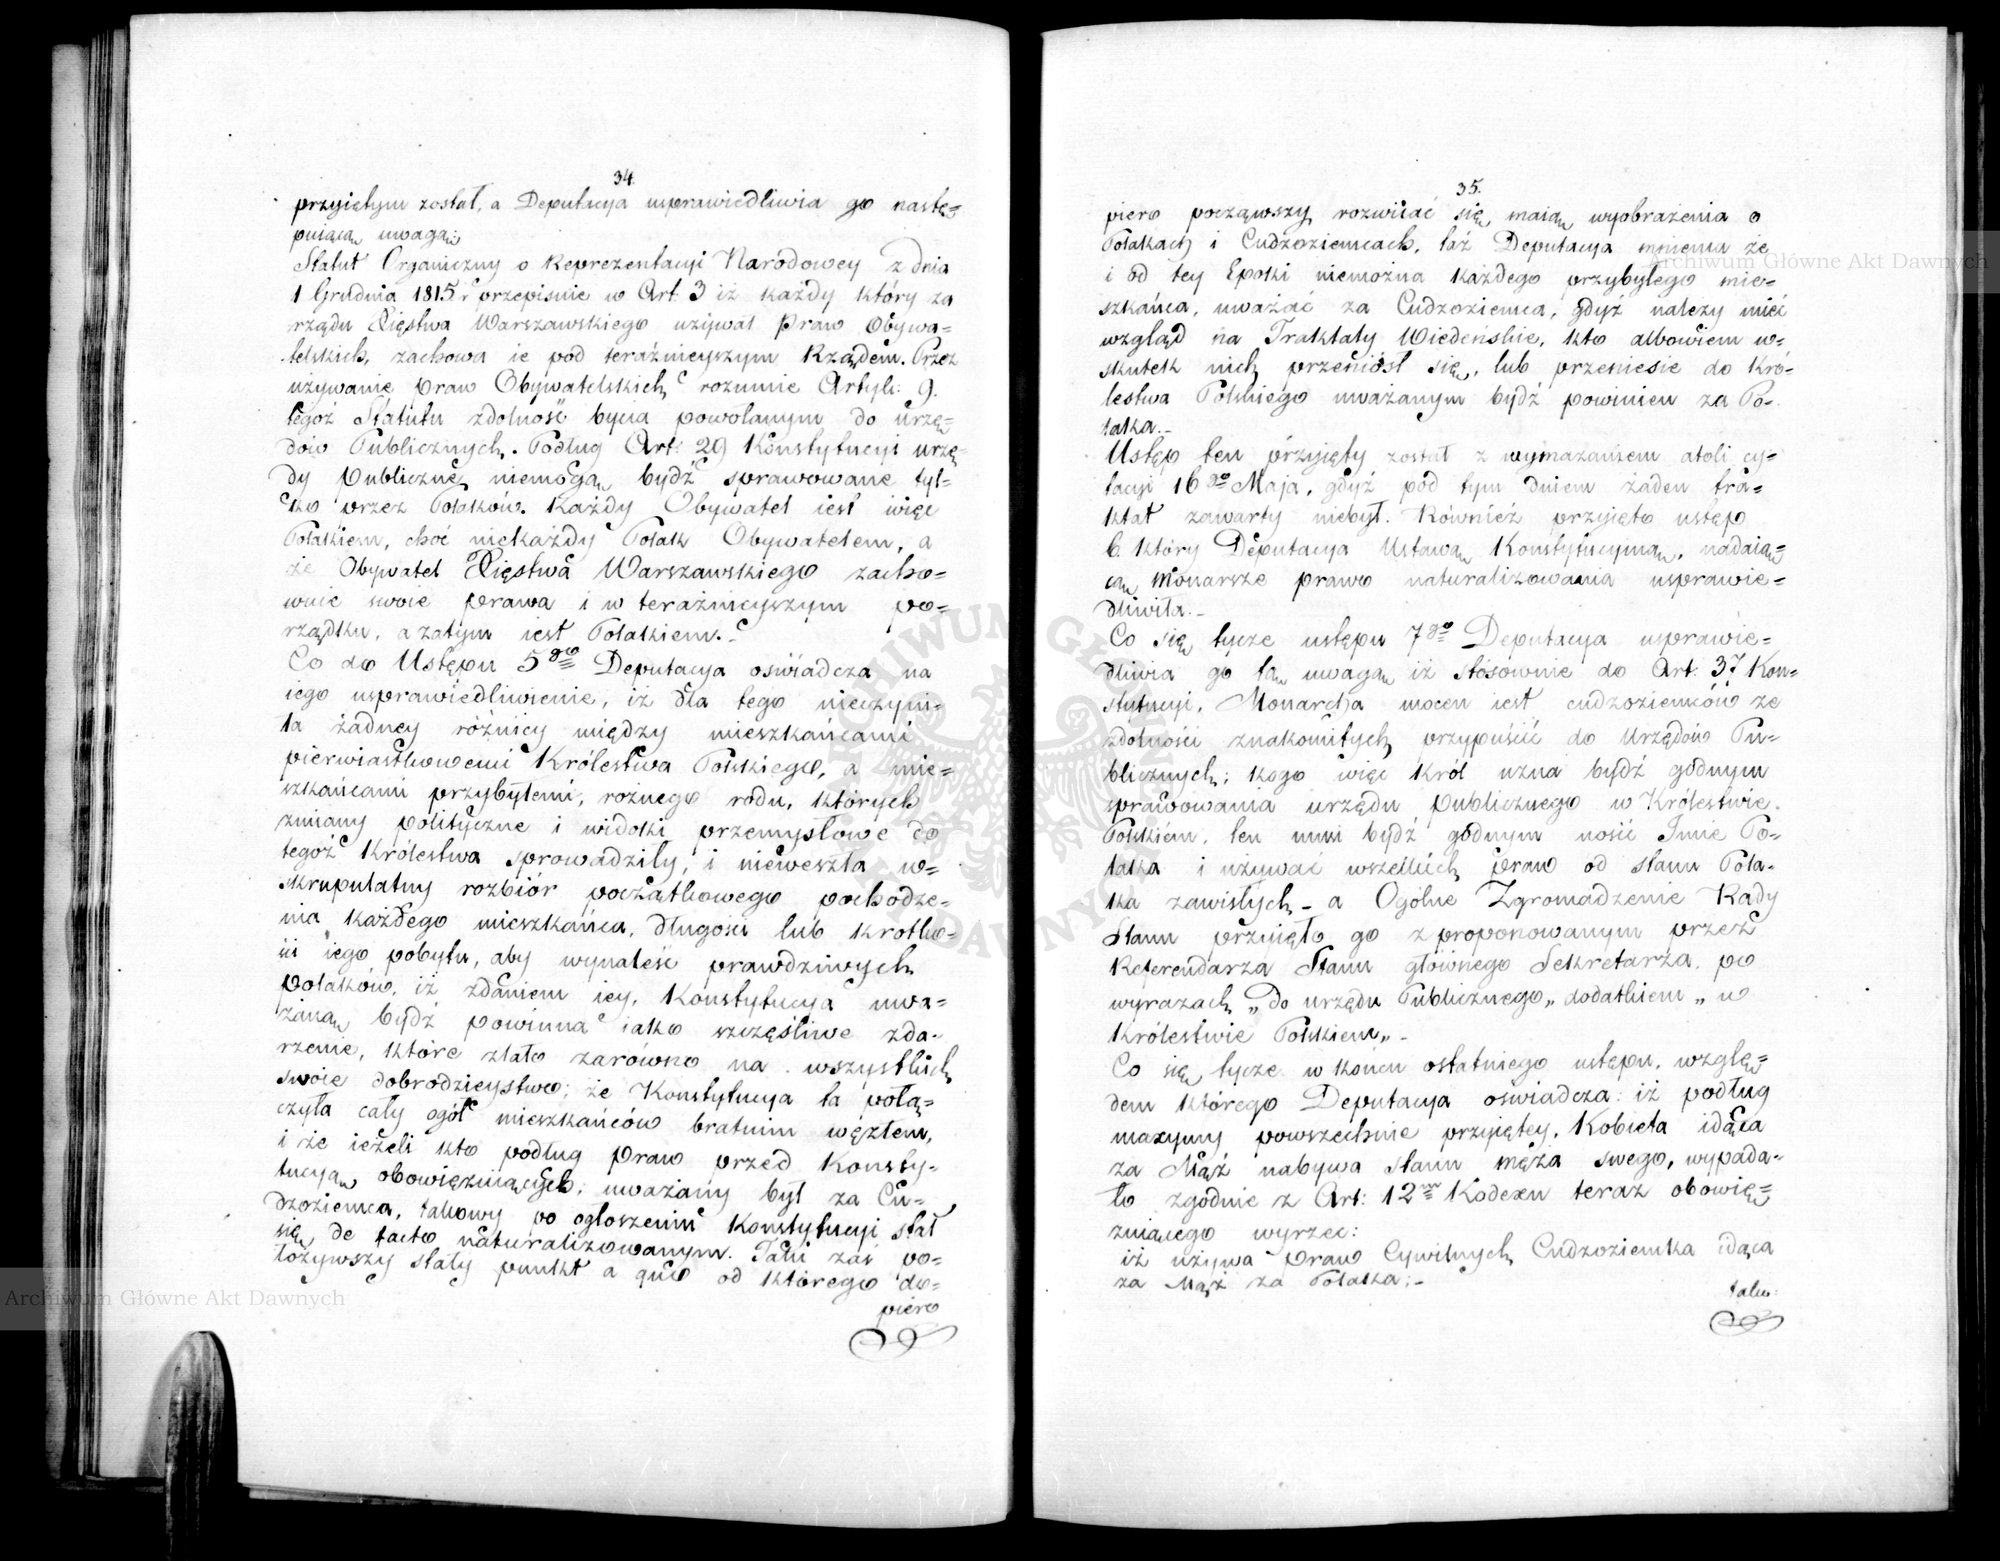 34.
przyiętym został, a Deputacya usprawiedliwia go nastę=
puiącą uwagą:
Statut Organiczny o Reprezentacyi Narodowey z dnia
1 Grudnia 1815 r przepisuie w Art: 3 iż każdy który za
rządu Xięstwa Warszawskiego używał Praw Obywa=
telskich, zachowa ie pod teraźnieyszym Rządem. Przez
używanie Praw Obywatelskich rozumie Artyk: 9.
tegoż Statutu zdolność bycia powołanym do urzę=
dów Publicznych. Podług Art: 29 Konstytucyi urzę=
dy Publiczne niemogą bydź sprawowane tyl=
ko przez Polaków. Każdy Obywatel iest więc
Polakiem, choć niekażdy Polak Obywatelem, a
że Obywatel Xięstwa Warszawskiego zacho=
wuie swoie prawa i w teraźnieyszym po=
rządku, a zatym iest Polakiem.-
Co do Ustępu 5go Deputacya oświadcza na
iego usprawiedliwienie, iż dla tego nieczyni=
ła żadney różnicy między mieszkańcami
pierwiastkowemi Królestwa Polskiego, a mie=
szkańcami przybyłemi, rożnego rodu, których
zmiany polityczne i widoki przemysłowe do
tegoż Królestwa sprowadziły, i nieweszła w=
skrupulatny rozbiór początkowego pochodze=
nia każdego mieszkańca, długości lub krótko=
ści iego pobytu, aby wynaleść prawdziwych
Polaków, iż zdaniem iey, Konstytucya uwa=
żaną bydź powinna iako szczęśliwe zda=
rzenie, które zlało zarówno na wszystkich
swoie dobrodzieystwo; że Konstytucya ta połą=
czyła cały ogół mieszkańców bratnim węzłem,
i że ieżeli kto podług Praw przed Konsty=
tucyą obowięzuiących, uważany był za Cu=
dzoziemca, takowy po ogłoszeniu Konstytucyi stał
się de facto naturalizowanym. Taki zaś po=
łożywszy stały punkt a quo od którego do=
piero
35.
piero począwszy rozwiiać się maią wyobrażenia o
Polakach i Cudzoziemcach, taż Deputacya mniema że
i od tey Epoki niemożna każdego przybyłego mie=
szkańca, uważać za Cudzoziemca, gdyż należy mieć
wzgląd na Traktaty Wiedeńskie, kto albowiem w=
skutek nich przeniósł się, lub przeniesie do Kró=
lestwa Polskiego uważanym bydź powinien za Po=
laka.-
Ustęp ten przyięty został z wymazaniem atoli cy=
tacyi 16go Maja, gdyż pod tym dniem żaden tra=
ktat zawarty niebył. Również przyięto ustęp
6 który Deputacya Ustawą Konstytucyiną, nadaią=
cą Monarsze prawo naturalizowania usprawie=
dliwiła.-
Co się tycze ustępu 7go Deputacya usprawie=
dliwia go tą uwagą iż stósownie do Art: 37 Kon=
stytucyi, Monarcha mocen iest cudzoziemców ze
zdolności znakomitych przypuścić do Urzędów Pu=
blicznych; kogo więc Król uzna bydź godnym
sprawowania urzędu publicznego w Królestwie
Polskiem, ten musi bydź godnym nosić Imie Po=
laka i używać wszelkich praw od stanu Pola=
ka zawisłych - a Ogólne Zgromadzenie Rady
Stanu przyięło go z proponowanym przez
Referendarza Stanu głównego Sekretarza, po
wyrazach „do urzędu Publicznego„ dodatkiem „w
Królestwie Polskiem„-
Co się tycze w końcu ostatniego ustępu, wzglę=
dem którego Deputacya oświadcza: iż podług
maxymy powszechnie przyiętey, Kobieta idąca
za Mąż nabywa stanu męża swego, wypada=
ło zgodnie z Art: 12m Kodexu teraz obowię=
zuiącego wyrzec:
iż używa praw Cywilnych Cudzoziemka idąca
za Mąż za Polaka;-
tako:
Archiwum Główne Akt Dawnych
Archiwum Główne Akt Dawnych
ARCHIWUM GŁÓWNE AKT DAWNYCH